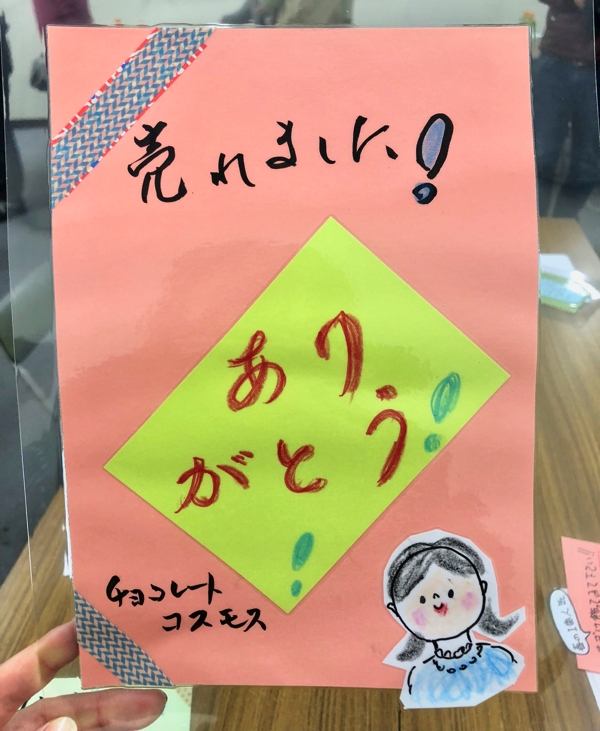 売れました!
あり
がとう!
!
チョコレート
コスモス